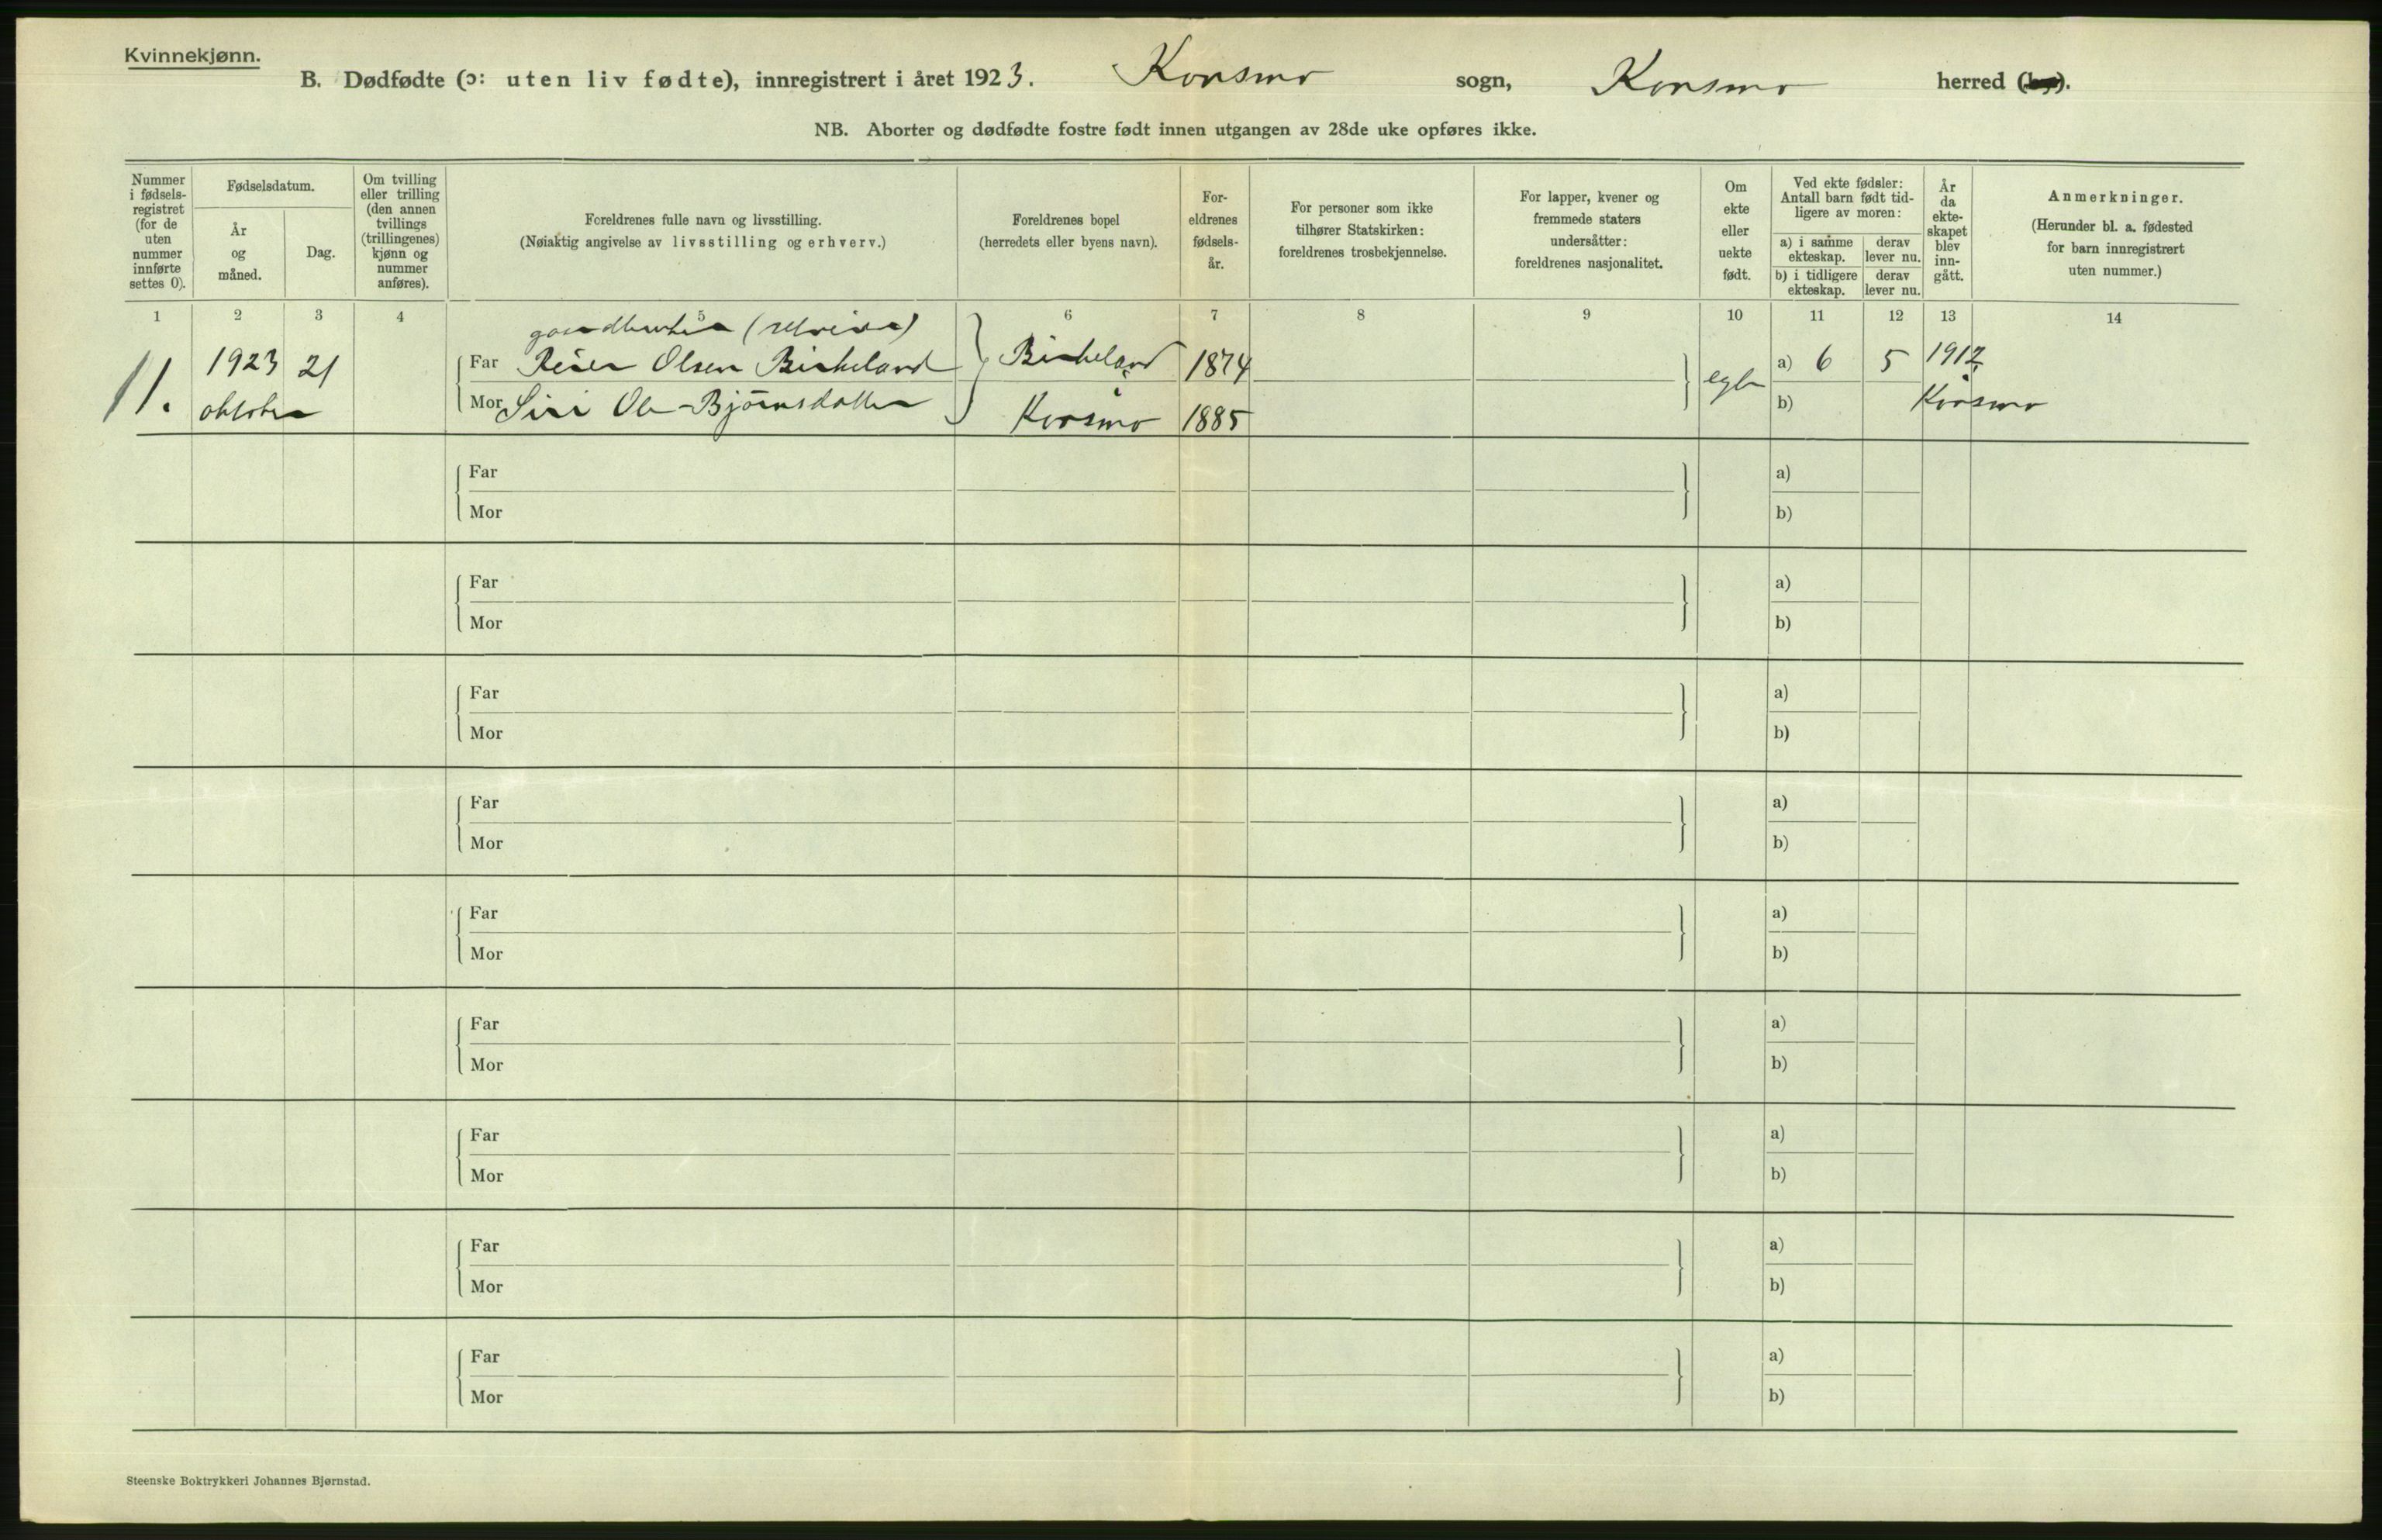 Kvinnekjønn.
B. Dødfødte (ɔ: uten liv fødte), innregistrert i året 1923. Konsmo sogn, Konsmo herred (by).
NB. Aborter og dødfødte fostre født innen utgangen av 28de uke opføres ikke.
Nummer i fødsels- registret (for de uten nummer innførte settes 0).
Fødselsdatum.
År og måned.
Dag.
Om tvilling eller trilling (den annen tvillings (trillingenes) kjønn og nummer anføres).
Foreldrenes fulle navn og livsstilling.
(Nøiaktig angivelse av livsstilling og erhverv.)
Foreldrenes bopel
(herredets eller byens navn).
For- eldrenes fødsels- år.
For personer som ikke tilhører Statskirken: foreldrenes trosbekjennelse.
For lapper, kvener og fremmede staters undersåtter: foreldrenes nasjonalitet.
Om ekte eller uekte født.
Ved ekte fødsler: Antall barn født tid- ligere av moren:
a) i samme ekteskap.
derav lever nu.
b) i tidligere ekteskap.
derav lever nu.
År da ekte- skapet blev inn- gått.
Anmerkninger.
(Herunder bl. a. fødested for barn innregistrert uten nummer.)
1 2 3 4 5 6 7 8 9 10 11 12 13 14
gaardbruker (selveier)
11. 1923 21 Far Reier Olsen Birkeland Birkeland 1874 a) 6 5 1912
oktober Mor Siri Ole-Bjørnsdatter Konsmo 1885 egte b) Konsmo
Far a)
Mor b)
Far a)
Mor b)
Far a)
Mor b)
Far a)
Mor b)
Far a)
Mor b)
Far a)
Mor b)
Far a)
Mor b)
Far a)
Mor b)
Far a)
Mor b)
Steenske Boktrykkeri Johannes Bjørnstad.